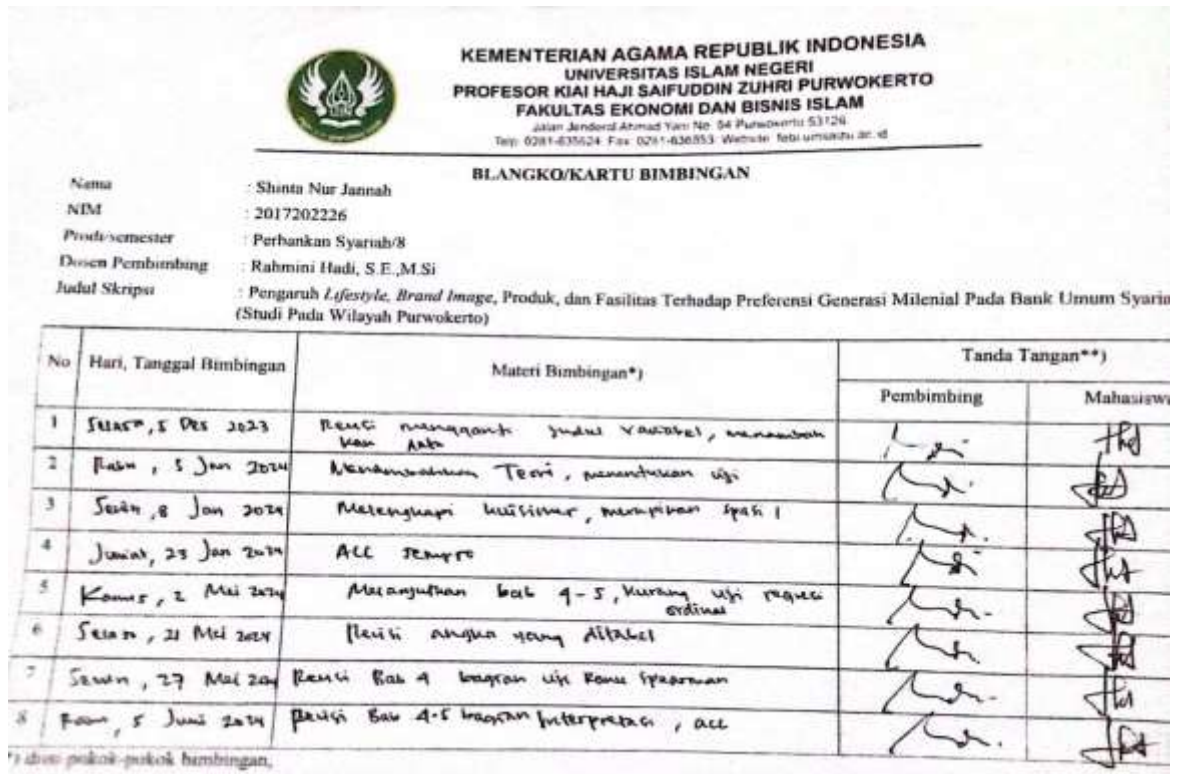 KEMENTERIAN AGAMA REPUBLIK INDONESIA
UNIVERSITAS ISLAM NEGERI
PROFESOR KIAI HAJI SAIFUDDIN ZUHRI PURWOKERTO
FAKULTAS EKONOMI DAN BISNIS ISLAM
Jalan Jenderal Ahmad Yani No. 54 Purwokerto 53126
Telp 0281-635624 Fax 0281-636553 Website febi.uinsaizu.ac.id
BLANGKO/KARTU BIMBINGAN
Nama : Shinta Nur Jannah
NIM : 2017202226
Prodi/semester : Perbankan Syariah/8
Dosen Pembimbing : Rahmini Hadi, S.E.,M.Si
Judul Skripsi : Pengaruh Lifestyle, Brand Image, Produk, dan Fasilitas Terhadap Preferensi Generasi Milenial Pada Bank Umum Syaria
(Studi Pada Wilayah Purwokerto)
No Hari, Tanggal Bimbingan Materi Bimbingan*) Tanda Tangan**)
Pembimbing Mahasiswa
1 Selasa, 5 Des 2023 Revisi mengganti judul variabel, menambah
kan
2 Rabu, 5 Jan 2024 Menambahkan Teori, menentukan uji
3 Senin, 8 Jan 2024 Melengkapi kuisioner, merapikan spasi 1
4 Jumat, 23 Jan 2024 ACC sempro
5 Kamis, 2 Mei 2024 Melanjutkan bab 4-5, kurang uji regresi
ordinal
6 Selasa, 21 Mei 2024 Revisi angka yang ditabel
7 Senin, 27 Mei 2024 Revisi Bab 4 bagian uji Rank Spearman
8 Rabu, 5 Juni 2024 Revisi Bab 4-5 bagian interpretasi, acc
*) diisi pokok-pokok bimbingan,